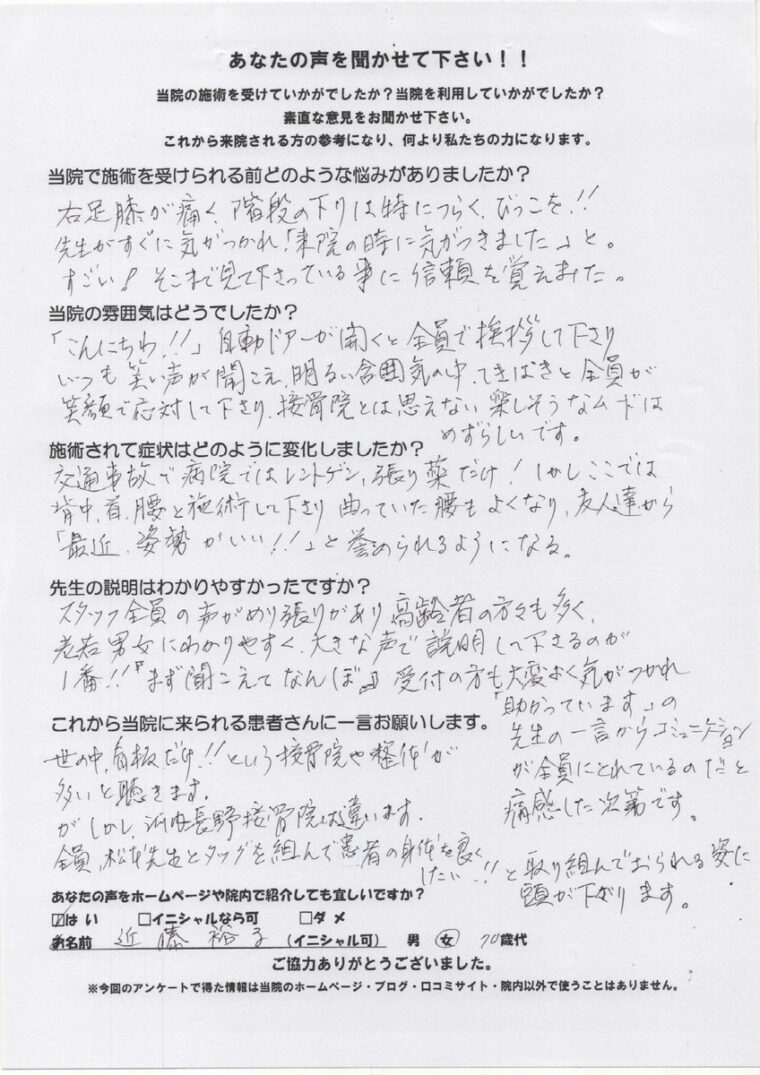 あなたの声を聞かせて下さい！！
当院の施術を受けていかがでしたか？当院を利用していかがでしたか？
素直な意見をお聞かせ下さい。
これから来院される方の参考になり、何より私たちの力になります。
当院で施術を受けられる前どのような悩みがありましたか？
右足膝が痛く、階段の下りは特につらく、びっこを!!
先生がすぐに気がつかれ「来院の時に気がつきました」と。
すごい！そこまで見て下さっている事に信頼を覚えました。
当院の雰囲気はどうでしたか？
「こんにちわ!!」自動ドアーが開くと全員で挨拶して下さり
いつも笑い声が聞こえ、明るい雰囲気の中、てきぱきと全員が
笑顔で応対して下さり、接骨院とは思えない楽しそうなムードは
めずらしいです。
施術されて症状はどのように変化しましたか？
交通事故で病院ではレントゲン、張り薬だけ！しかしここでは
背中、首、腰と施術して下さり曲っていた腰もよくなり、友人達から
「最近、姿勢がいい!!」と誉められるようになる。
先生の説明はわかりやすかったですか？
スタッフ全員の声がめり張りがあり高齢者の方々も多く、
老若男女にわかりやすく、大きな声で説明して下さるのが
1番!!『まず聞こえてなんぼ』受付の方も大変よく気がつかれ
「助かっています」の
先生の一言からコミュニケーション
が全員にとれているのだと
痛感した次第です。
これから当院に来られる患者さんに一言お願いします。
世の中、看板だけ!!という接骨院や整体が
多いと聴きます。
がしかし、河内長野接骨院は違います。
全員、松本先生とタッグを組んで患者の身体を良く
したい!!と取り組んでおられる姿に
頭が下がります。
あなたの声をホームページや院内で紹介しても宜しいですか？
☑はい　□イニシャルなら可　□ダメ
お名前　近藤裕子（イニシャル可）　男　女　70歳代
ご協力ありがとうございました。
※今回のアンケートで得た情報は当院のホームページ・ブログ・口コミサイト・院内以外で使うことはありません。